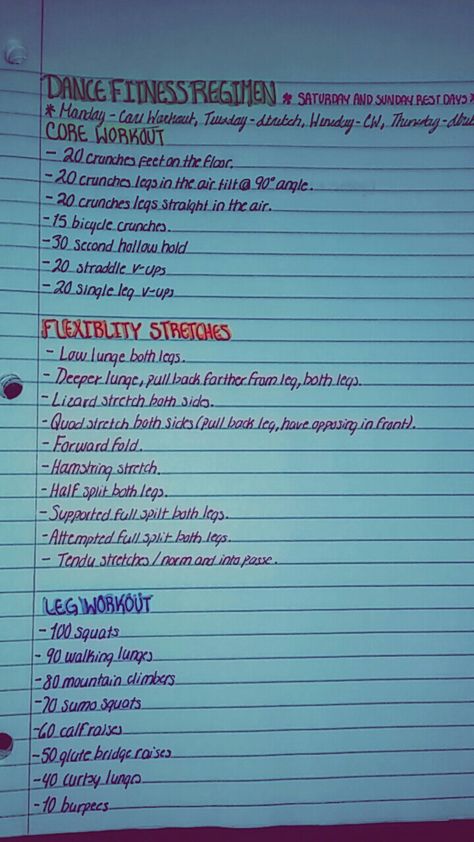 DANCE FITNESS REGIMEN * SATURDAY AND SUNDAY REST DAYS *
* Monday - Core Workout, Tuesday - stretch, Wensday - CW, Thursday -
CORE WORKOUT
- 20 crunches feet on the floor.
- 20 crunches legs in the air tilt @ 90° angle.
- 20 crunches legs straight in the air.
- 15 bicycle crunches.
- 30 second hollow hold
- 20 straddle v-ups
- 20 single leg v-ups
FLEXIBLITY STRETCHES
- Low lunge both legs.
- Deeper lunge, pull back farther from leg, both legs.
- Lizard stretch both sides.
- Quad stretch both sides (pull back leg, have opposing in front).
- Forward fold.
- Hamstring stretch.
- Half split both legs.
- Supported full spilt both legs.
- Attempted full split both legs.
- Tendu stretches / norm and into passe.
LEG WORKOUT
- 100 squats
- 90 walking lunges
- 80 mountain climbers
- 70 sumo squats
- 60 calf raises
- 50 glute bridge raises
- 40 curtsy lunges
- 10 burpees